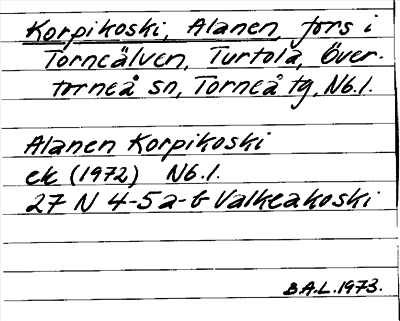 Korpikoski, Alanen, fors i
Torneälven, Turtola, Över-
torneå sn, Torneå tg, Nb.l.
Alanen Korpikoski
ek (1972) Nb.l.
27 N 4-5a-b Valkeakoski
B.A.L. 1973.